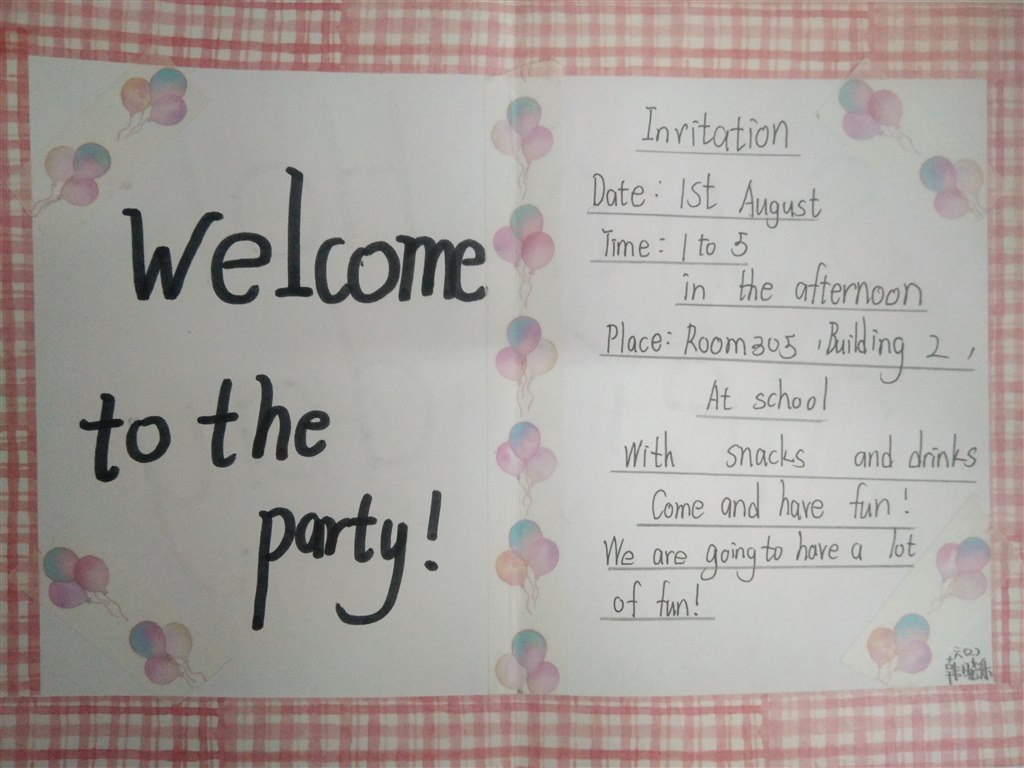 Welcome
to the
party!
Invitation
Date: 1st August
Time: 1 to 5
in the afternoon
Place: Room305, Building 2,
At school
With snacks and drinks
Come and have fun!
We are going to have a lot
of fun!